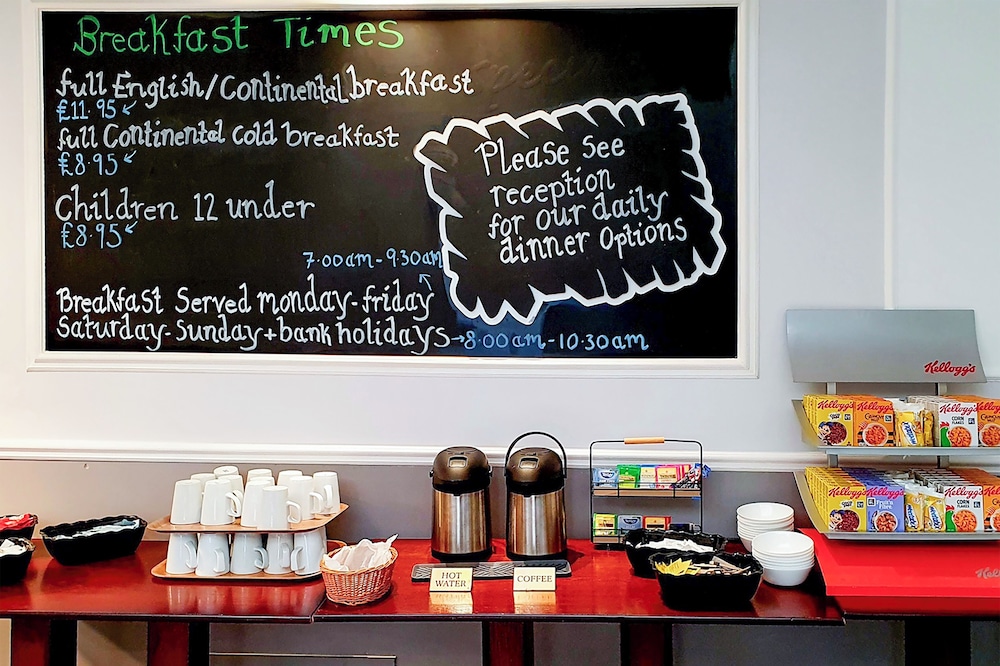 Breakfast Times
full English/Continental breakfast
£11.95
full Continental cold breakfast
£8.95
Children 12 under
£8.95
7.00am-9.30am
Breakfast Served monday-friday
Saturday-Sunday+bank holidays→8.00am-10.30am
Please See
reception
for our daily
dinner Options
HOT
WATER
COFFEE
Kellogg's
Kellogg's
Kellogg's
Kellogg's
CORN
FLAKES
Kellogg's
Kellogg's
Kellogg's
Kellogg's
CORN
FLAKES